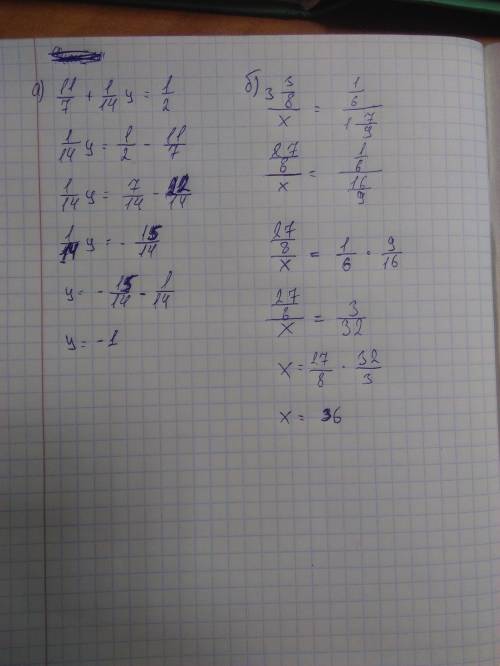 а) 11/7 + 1/14 y = 1/2
1/14 y = 1/2 - 11/7
1/14 y = 7/14 - 22/14
1/14 y = - 15/14
y = - 15/14 - 1/14
y = -1
б) (3 3/8)/x = (1/6)/(1 7/9)
(27/8)/x = (1/6)/(16/9)
(27/8)/x = 1/6 · 9/16
(27/8)/x = 3/32
x = 27/8 · 32/3
x = 36